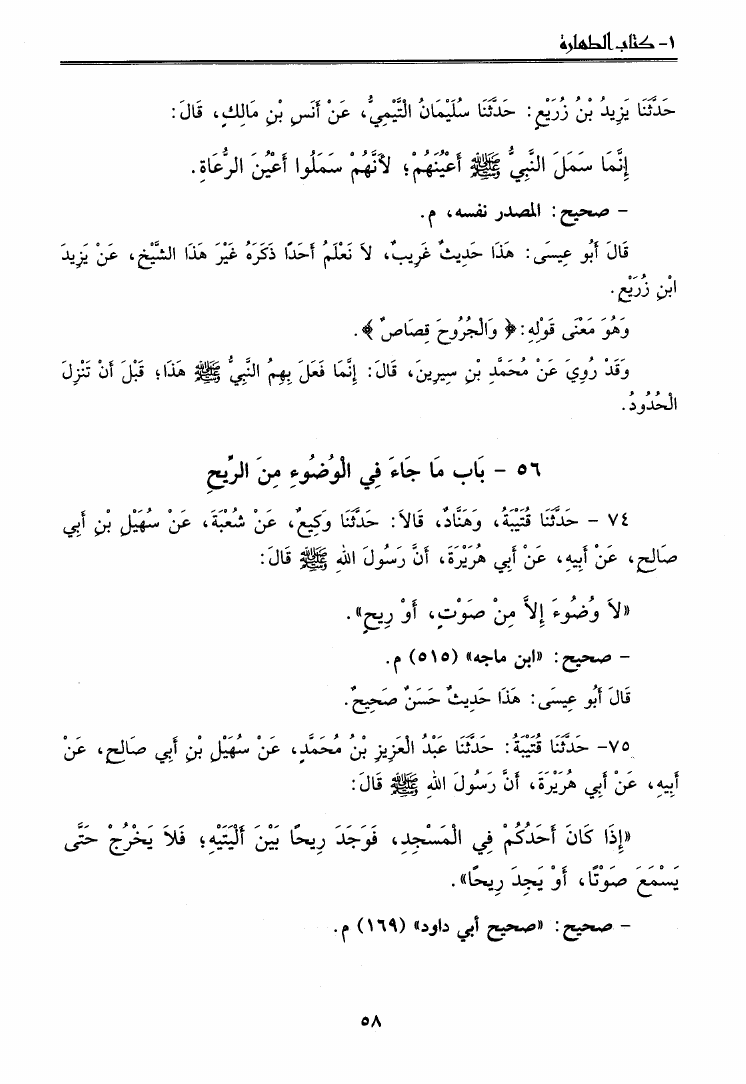 ١- كتاب الطهارة
حَدَّثَنَا يَزِيدُ بْنُ زُرَيْعٍ: حَدَّثَنَا سُلَيْمَانُ التَّيْمِيُّ، عَنْ أَنَسِ بْنِ مَالِكٍ، قَالَ:
إِنَّمَا سَمَلَ النَّبِيُّ ﷺ أَعْيُنَهُمْ؛ لأَنَّهُمْ سَمَلُوا أَعْيُنَ الرُّعَاةِ.
- صحيح: المصدر نفسه، م.
قَالَ أَبُو عِيسَى: هَذَا حَدِيثٌ غَرِيبٌ، لاَ نَعْلَمُ أَحَدًا ذَكَرَهُ غَيْرَ هَذَا الشَّيْخِ، عَنْ يَزِيدَ
ابْنِ زُرَيْعٍ.
وَهُوَ مَعْنَى قَوْلِهِ: ﴿ وَالْجُرُوحَ قِصَاصٌ ﴾.
وَقَدْ رُوِيَ عَنْ مُحَمَّدِ بْنِ سِيرِينَ، قَالَ: إِنَّمَا فَعَلَ بِهِمُ النَّبِيُّ ﷺ هَذَا؛ قَبْلَ أَنْ تَنْزِلَ
الْحُدُودُ.
٥٦ - بَاب مَا جَاءَ فِي الْوُضُوءِ مِنَ الرِّيحِ
٧٤ - حَدَّثَنَا قُتَيْبَةُ، وَهَنَّادٌ، قَالاَ: حَدَّثَنَا وَكِيعٌ، عَنْ شُعْبَةَ، عَنْ سُهَيْلِ بْنِ أَبِي
صَالِحٍ، عَنْ أَبِيهِ، عَنْ أَبِي هُرَيْرَةَ، أَنَّ رَسُولَ اللهِ ﷺ قَالَ:
«لاَ وُضُوءَ إِلاَّ مِنْ صَوْتٍ، أَوْ رِيحٍ».
- صحيح: «ابن ماجه» (٥١٥) م.
قَالَ أَبُو عِيسَى: هَذَا حَدِيثٌ حَسَنٌ صَحِيحٌ.
٧٥- حَدَّثَنَا قُتَيْبَةُ: حَدَّثَنَا عَبْدُ الْعَزِيزِ بْنُ مُحَمَّدٍ، عَنْ سُهَيْلِ بْنِ أَبِي صَالِحٍ، عَنْ
أَبِيهِ، عَنْ أَبِي هُرَيْرَةَ، أَنَّ رَسُولَ اللهِ ﷺ قَالَ:
«إِذَا كَانَ أَحَدُكُمْ فِي الْمَسْجِدِ، فَوَجَدَ رِيحًا بَيْنَ أَلْيَتَيْهِ؛ فَلاَ يَخْرُجْ حَتَّى
يَسْمَعَ صَوْتًا، أَوْ يَجِدَ رِيحًا».
- صحيح: «صحيح أبي داود» (١٦٩) م.
٥٨